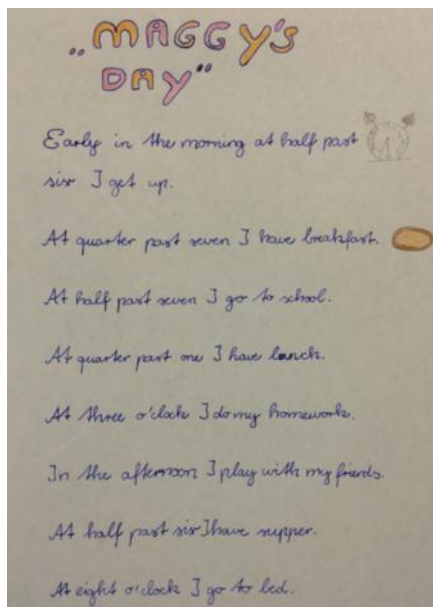 „MAGGY'S
DAY"
Early in the morning at half past
six I get up.
At quarter past seven I have breakfast.
At half past seven I go to school.
At quarter past one I have lunch.
At three o'clock I do my homework.
In the afternoon I play with my friends.
At half past six I have supper.
At eight o'clock I go to bed.